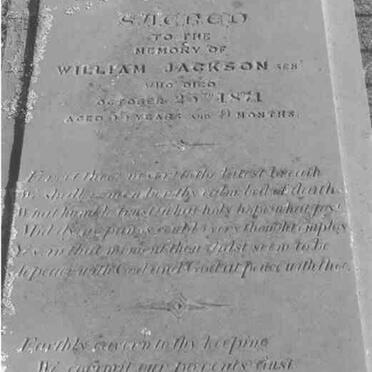 SACRED
TO THE
MEMORY OF
WILLIAM JACKSON SEN
WHO DIED
OCTOBER 1871
AGED YEARS AND MONTHS.
Forget thee never to the latest breath
We shall remember thy calm bed of death
What humble trust what holy hope what joy
Mid dying pangs could every thought employ
Yes in that moment thou didst seem to be
At peace with God and God at peace with thee.
Earthly cavern to thy keeping
We commit our parents dust